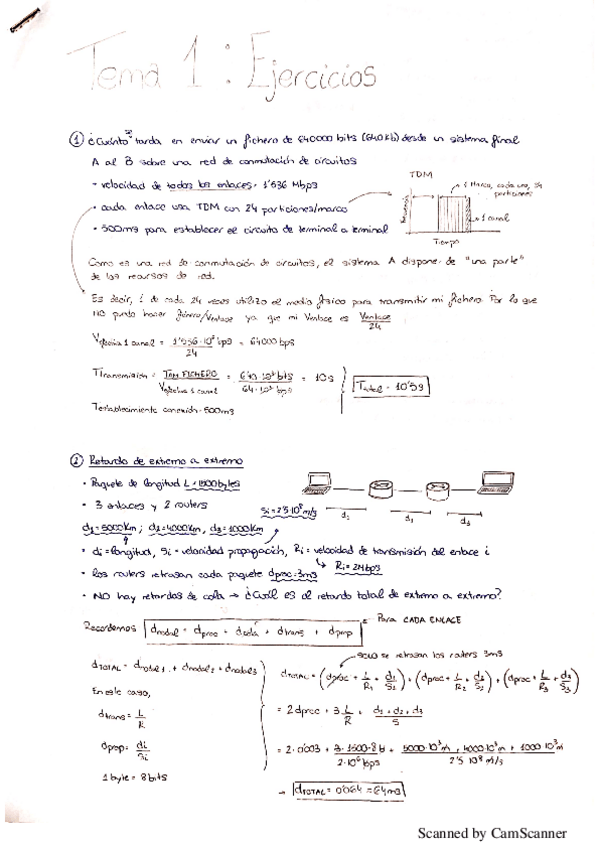 Tema 1: Ejercicios
① ¿Cuánto tarda en enviar un fichero de 640000 bits (640kb) desde un sistema final
A al B sobre una red de conmutación de circuitos
• velocidad de todos los enlaces = 1'536 Mbps
• cada enlace usa TDM con 24 particiones/marco
• 500ms para establecer el circuito de terminal a terminal
TDM
1 Marco, cada uno, 24
particiones
1 canal
Tiempo
Como es una red de conmutación de circuitos, el sistema A dispone de "una parte"
de los recursos de red.
Es decir, 1 de cada 24 veces utilizo el medio físico para transmitir mi fichero. Por lo que
no puedo hacer ya que mi Venlace es Venlace/24
Vefectiva 1 canal = 1'536·10⁶ bps / 24 = 64000 bps
Ttransmisión = TAM. FICHERO / Vefectiva 1 canal = 640·10³ bits / 64·10³ = 10s
Ttotal = 10'5s
Testablecimiento conexión = 500ms
② Retardo de extremo a extremo
• Paquete de longitud L = 1500 bytes
• 3 enlaces y 2 routers
Si = 2'5·10⁸ m/s
d1 d2 d3
d1 = 5000Km ; d2 = 4000Km, d3 = 1000Km
• di = longitud, Si = velocidad propagación, Ri = velocidad de transmisión del enlace i
• los routers retrasan cada paquete dproc = 3ms
Ri = 2Mbps
• NO hay retardos de cola → ¿Cuál es el retardo total de extremo a extremo?
Recordemos dnodal = dproc + dcola + dtrans + dprop
Para CADA ENLACE
solo se retrasan los routers 3ms
dTOTAL = dnodal1 + dnodal2 + dnodal3
dTOTAL = (dproc + L/R1 + d1/S1) + (dproc + L/R2 + d2/S2) + (dproc + L/R3 + d3/S3)
En este caso,
dtrans = L/R
= 2dproc + 3·L/R + d1+d2+d3/S
dprop = di/Si
= 2·0'003 + 3·1500·8 b / 2·10⁶ bps + 5000·10³m + 4000·10³m + 1000·10³m / 2'5·10⁸ m/s
1 byte = 8 bits
→ dTOTAL = 0'064 = 64ms
Scanned by CamScanner